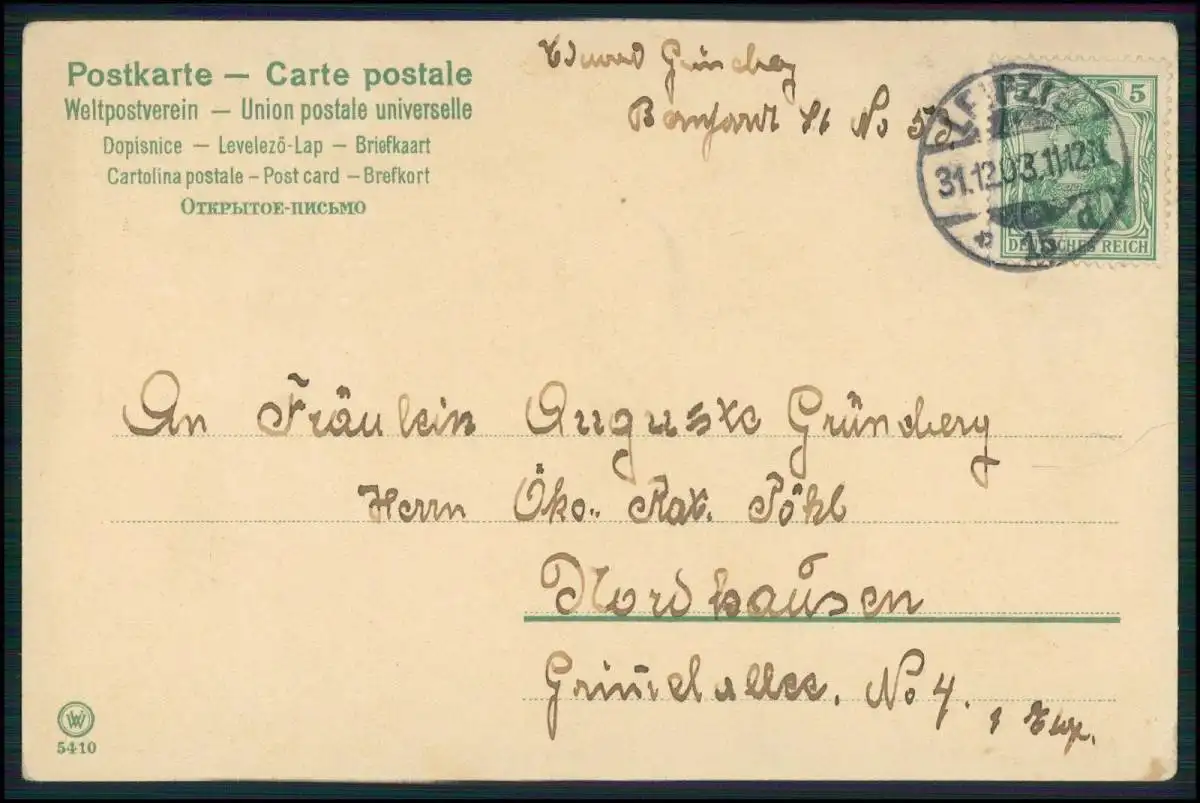 Postkarte — Carte postale
Weltpostverein — Union postale universelle
Dopisnice — Levelezö-Lap — Briefkaart
Cartolina postale – Post card – Brefkort
ОТКРЫТОЕ-ПИСЬМО
Grünberg
St No 53
LEIPZIG
31.12.03.11-12.N
* 15 d
5
DEUTSCHES REICH
An Fräulein Auguste Gründberg
Herrn Öko.. Rat. Pöhl
Nordhausen
No 4.
1 Exp.
W
5410